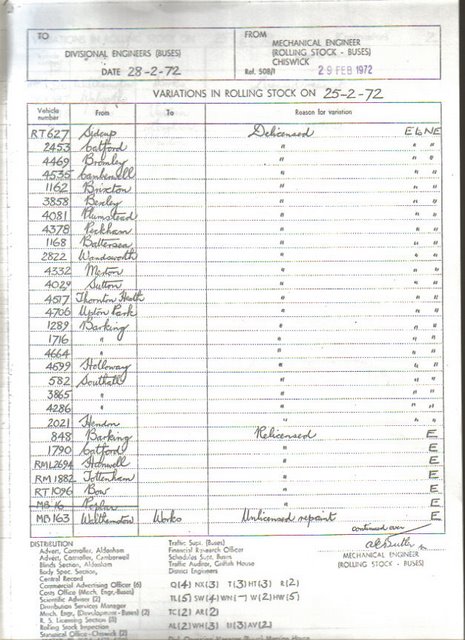 TO
DIVISIONAL ENGINEERS (BUSES)
DATE 28-2-72
FROM
MECHANICAL ENGINEER
(ROLLING STOCK - BUSES)
CHISWICK
Ref. 508/1 29 FEB 1972
VARIATIONS IN ROLLING STOCK ON 25-2-72
Vehicle number From To Reason for variation
RT 627 Sidcup Delicensed E & NE
2453 Catford " " "
4469 Bromley " " "
4535 Camberwell " " "
1162 Brixton " " "
3858 Bexley " " "
4081 Plumstead " " "
4378 Peckham " " "
1168 Battersea " " "
2822 Wandsworth " " "
4332 Merton " " "
4029 Sutton " " "
4517 Thornton Heath " " "
4706 Upton Park " " "
1289 Barking " " "
1716 " " " "
4664 " " " "
4699 Holloway " " "
582 Southall " " "
3865 " " " "
4286 " " " "
2021 Hendon " " "
848 Barking Relicensed E
1790 Catford " E
RML2694 Hanwell " E
RM 1882 Tottenham " E
RT 1096 Bow " E
MB 16 Poplar " E
MB 163 Walthamstow Works Unlicensed repaint E
continued over
MECHANICAL ENGINEER
(ROLLING STOCK - BUSES)
DISTRIBUTION
Advert. Controller, Aldenham
Advert. Controller, Camberwell
Blinds Section, Aldenham
Body Spec. Section,
Central Record
Commercial Advertising Officer (6)
Costs Office (Mech. Engr.-Buses)
Scientific Adviser (2)
Distribution Services Manager
Mech. Engr. (Development - Buses) (2)
R. S. Licensing Section (3)
Rolling Stock Inspection
Statistical Office - Chiswick (2)
Traffic Supt. (Buses)
Financial Research Officer
Schedules Supt. Buses
Traffic Auditor, Griffith House
District Engineers
Q(4) NX(3) T(3) HT(3) R(2)
TL(5) SW(4) WN(-) W(2) HW(5)
TC(2) AR(2)
AL(2) WH(3) U(3) AV(2)